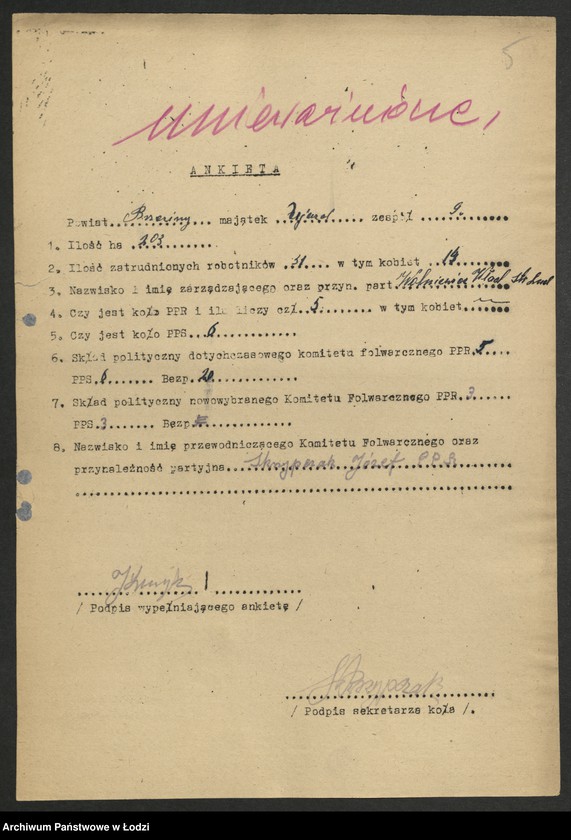 5
unieważnione,
A N K I E T A
Powiat Brzeziny majątek zespół 9.
1. Ilość ha 203
2. Ilość zatrudnionych robotników 51 w tym kobiet 19
3. Nazwisko i imię zarządzającego oraz przyn. part
4. Czy jest koło PPR i ile liczy czł. 5 w tym kobiet —
5. Czy jest koło PPS. 6
6. Skład polityczny dotychczasowego komitetu folwarcznego PPR. 5
PPS. 6 Bezp. 20
7. Skład polityczny nowowybranego Komitetu Folwarcznego PPR. 3
PPS. 3 Bezp.
8. Nazwisko i imię przewodniczącego Komitetu Folwarcznego oraz
przynależność partyjna Skrzypczak Józef PPR
/ Podpis wypełniającego ankietę /
Skrzypczak
/ Podpis sekretarza koła /.
Archiwum Państwowe w Łodzi